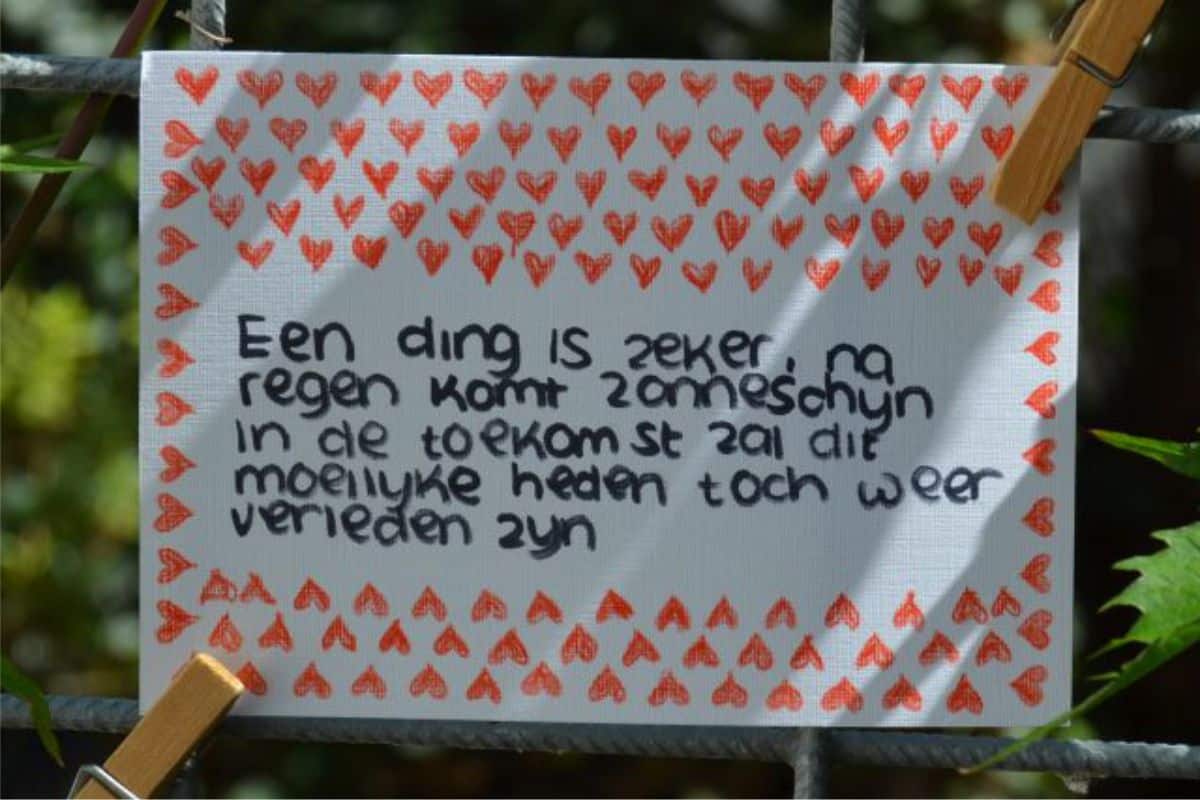 Een ding is zeker, na
regen komt zonneschyn
in de toekomst zal dit
moeilyke heden toch weer
verleden zyn